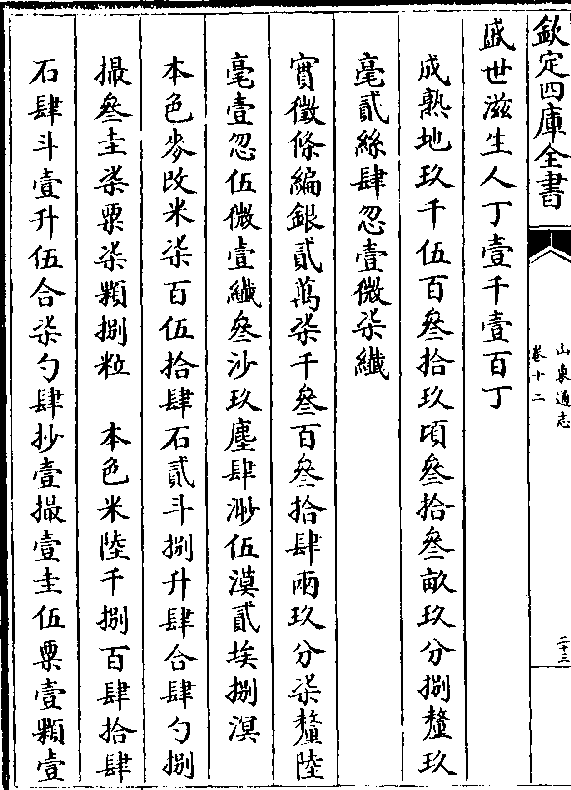 欽定四庫全書
山東通志
卷十二
二十三
盛世滋生人丁壹千壹百丁
成熟地玖千伍百叄拾玖頃叄拾叄畝玖分捌釐玖
毫貳絲肆忽壹微柒纖
實徵條編銀貳萬柒千叄百叄拾肆兩玖分柒釐陸
毫壹忽伍微壹纖叄沙玖塵肆渺伍漠貳埃捌溟
本色麥改米柒百伍拾肆石貳斗捌升肆合肆勺捌
撮叄圭柒粟柒顆捌粒　本色米陸千捌百肆拾肆
石肆斗壹升伍合柒勺肆抄壹撮壹圭伍粟壹顆壹